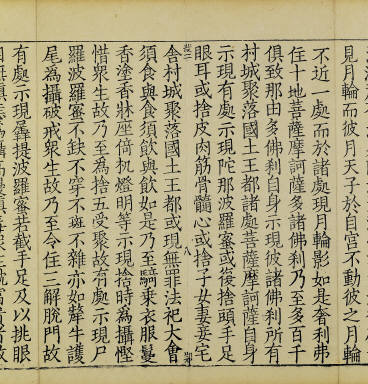 見月輪而彼月天子於自宮不動彼之月輪
不近一處而於諸處現月輪影如是奢利弗
住十地菩薩摩訶薩多諸佛刹乃至多百千
俱致那由多佛刹自身示現彼諸佛刹所有
村城聚落國土王都諸處菩薩摩訶薩自身
示現有處示現陀那波羅蜜或復捨頭手足
眼耳或捨皮肉筋骨髓心或捨子女妻妾宅
八
舍村城聚落國土王都或現無罪法祀大會
須食與食須飲與飲如是乃至騎乘衣服鬘
香塗香牀座倚杌燈明等示現捨時為攝慳
惜衆生故乃至為捨五受聚故有處示現尸
羅波羅蜜不缺不穿不斑不雜亦如犛牛護
尾為攝破戒衆生故乃至令住三解脫門故
有處示現羼提波羅蜜若截手足及以挑眼